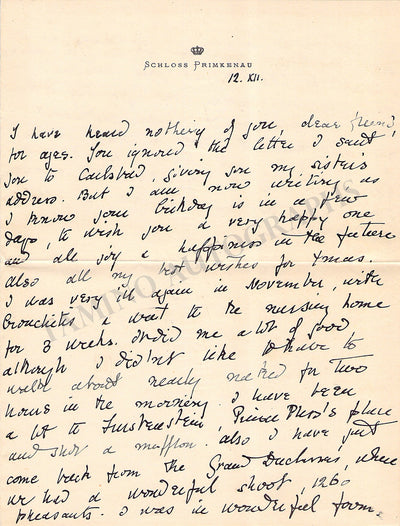 SCHLOSS PRIMKENAU
12. XII.
I have heard nothing of you, dear friend,
for ages. You ignored the letter I sent
you to Carlsbad, giving you my sister's
address. But I am now writing, as
I know your birthday is in a few
days, to wish you a very happy one
and all joy & happiness in the future
also all my best wishes for Xmas.
I was very ill again in November, with
Bronchitis & went to the nursing home
for 3 weeks. It did me a lot of good
although I didn't like to have to
walk about nearly naked for two
hours in the morning. I have been
a lot to Furstenstein, Prince Pless's place
and shot a mufflon. also I have just
come back from the Grand Duchess, where
we had a wonderful shoot, 1260
pheasants. I was in wonderful form.
TAMINO AUTOGRAPHS